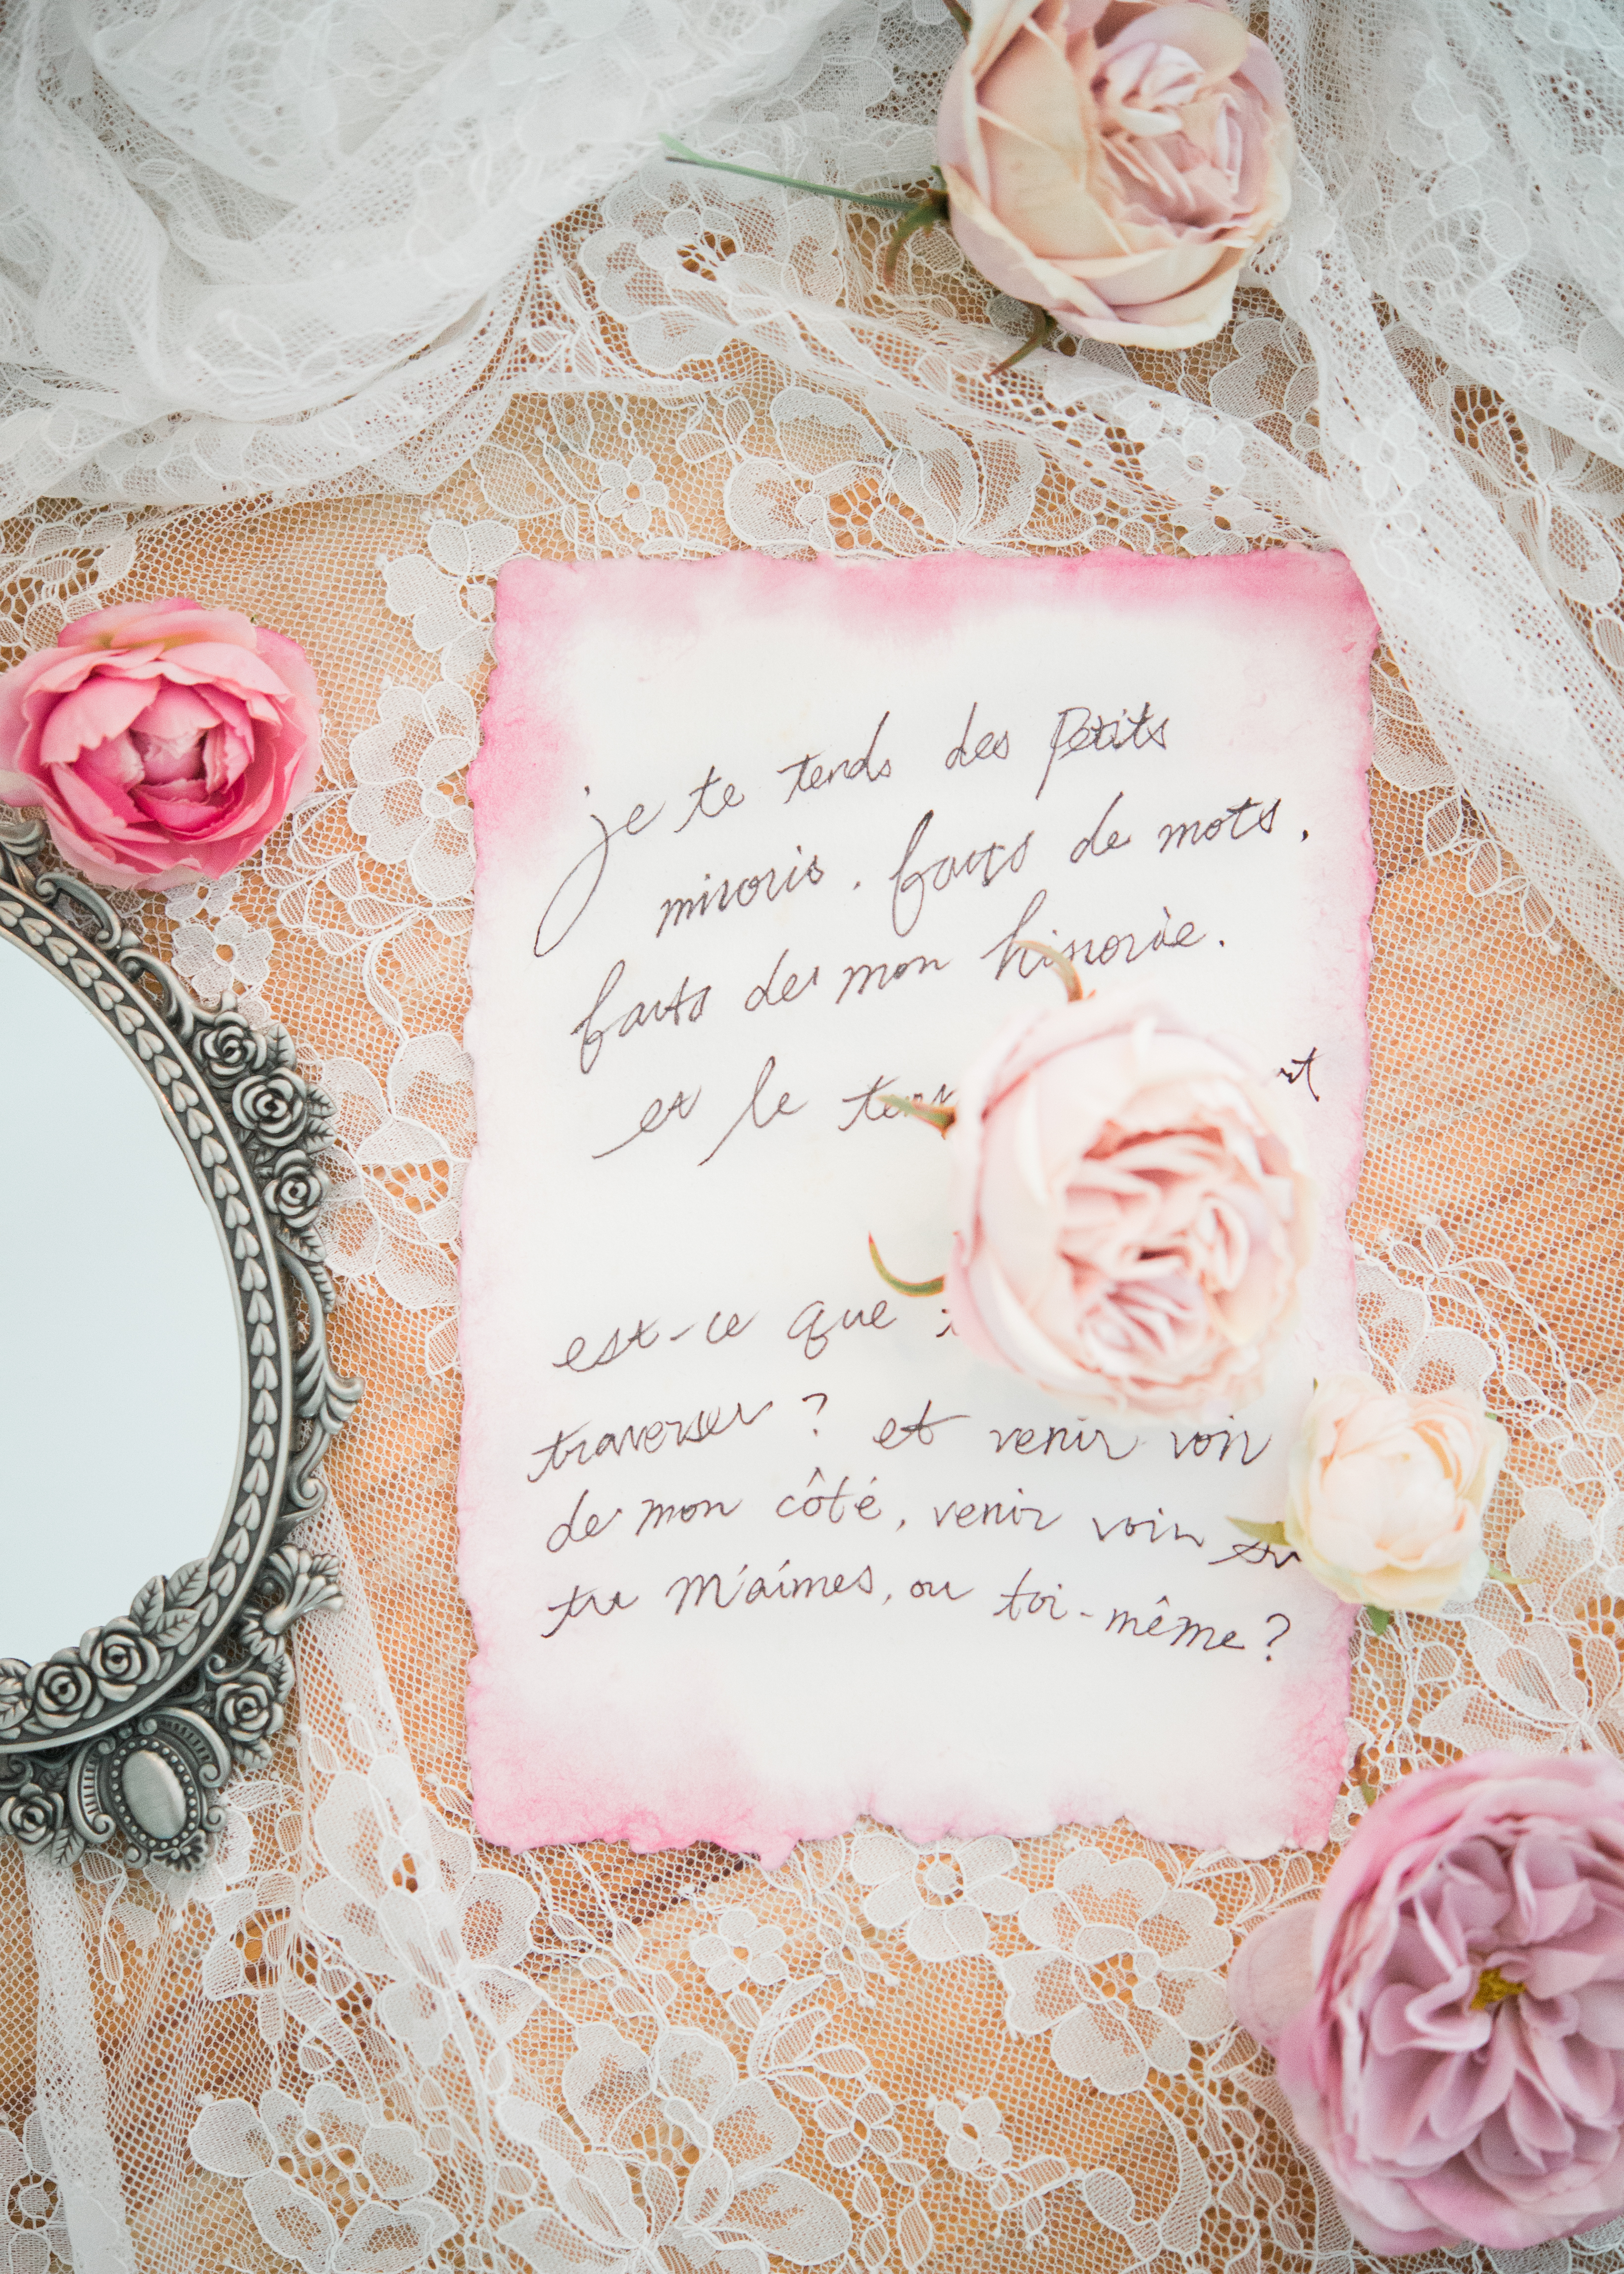 je te tends des Petits
miroris. faits de mots.
faits de mon
et le
est-ce que
traverser ? et venir voir
de mon côté, venir voir
tu m'aimes, ou toi-même ?